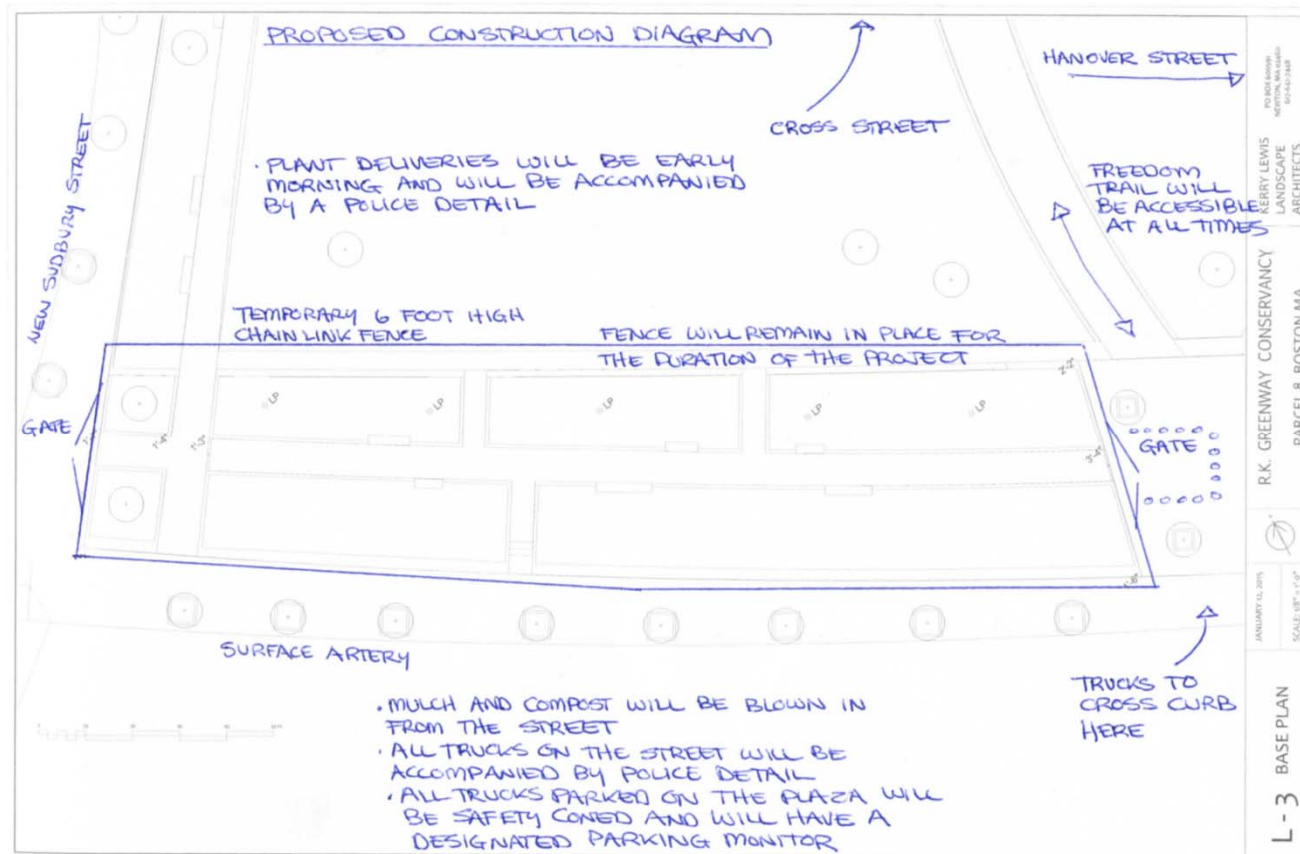 PROPOSED CONSTRUCTION DIAGRAM
HANOVER STREET
CROSS STREET
NEW SUDBURY STREET
· PLANT DELIVERIES WILL BE EARLY
MORNING AND WILL BE ACCOMPANIED
BY A POLICE DETAIL
FREEDOM
TRAIL WILL
BE ACCESSIBLE
AT ALL TIMES
TEMPORARY 6 FOOT HIGH
CHAIN LINK FENCE
FENCE WILL REMAIN IN PLACE FOR
THE DURATION OF THE PROJECT
LP
LP
LP
LP
LP
GATE
GATE
SURFACE ARTERY
· MULCH AND COMPOST WILL BE BLOWN IN
FROM THE STREET
· ALL TRUCKS ON THE STREET WILL BE
ACCOMPANIED BY POLICE DETAIL
· ALL TRUCKS PARKED ON THE PLAZA WILL
BE SAFETY CONED AND WILL HAVE A
DESIGNATED PARKING MONITOR
TRUCKS TO
CROSS CURB
HERE
KERRY LEWIS
LANDSCAPE
ARCHITECTS
R.K. GREENWAY CONSERVANCY
PARCEL 8, BOSTON MA
JANUARY 12, 2015
L - 3 BASE PLAN